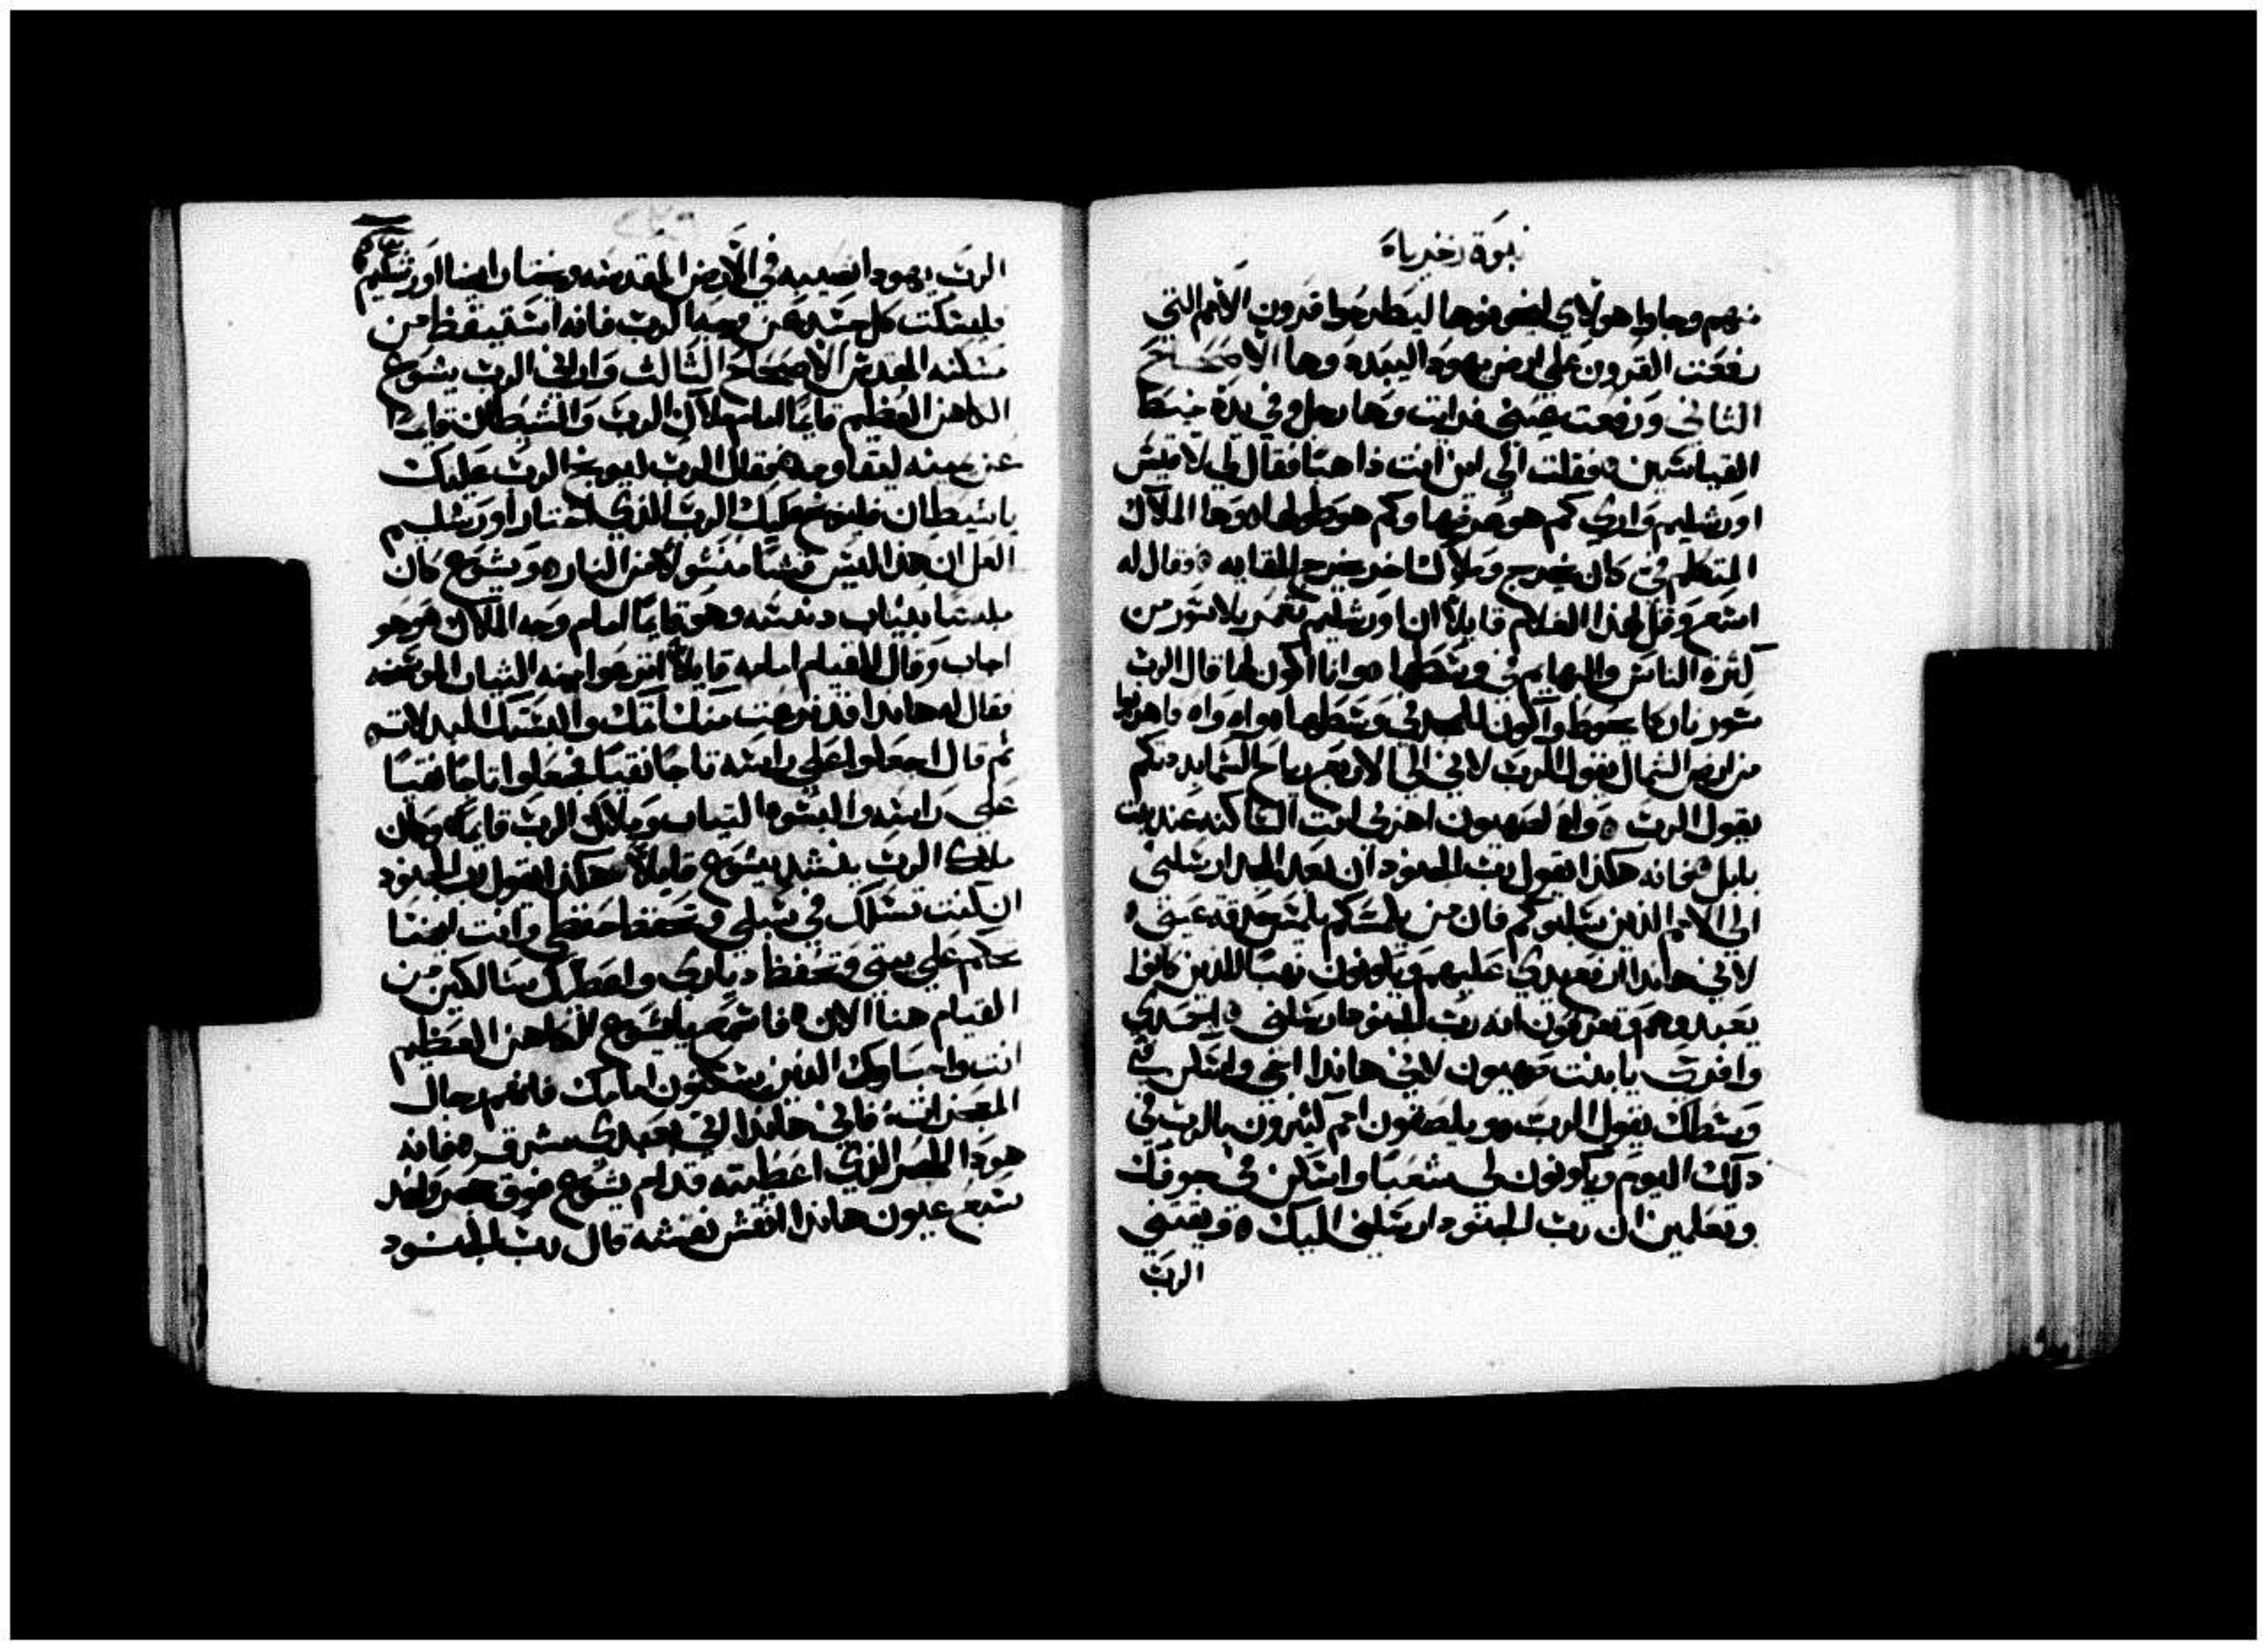 نبوة زخرياه
منهم وجاوا هولاي ليخوفوها ليطرحوا قرون الامم التي
رفعت القرون علي ارض يهودا ليبدده وها الاصحاح
الثاني ورفعت عيني فرايت وها رجل وفي يده خيط
القياسين فقلت الي اين انت ذاهبا فقال لي لاقيس
اورشليم واري كم هو عرضها وكم هو طولها وها الملاك
المتكلم في كان يخرج وملاك اخر يخرج للقايه وقال له
اسرع وقل لهذا الغلام قايلا ان اورشليم تعمر بلا سور من
كثرة الناس والبهايم في وسطها وانا اكون لها قال الرب
سور نار كما يحوط واكون للمجد في وسطها واه واه فاهربوا
من ارض الشمال يقول الرب لاني الي الاربع رياح السما بددتكم
يقول الرب واه لصهيون اهربي انت الساكنه عند بنت
بابل فانه هكذا يقول رب الجنود ان بعد المجد ارسلني
الي الامم الذين سلبوكم فان من يلمسكم يلمس حدقة عيني
لاني هانذا ارفع يدي عليهم ويكونون نهبا للذين كانوا
يعبدوهم وتعرفون انه رب الجنود ارسلني سبحي
وافرحي يا بنت صهيون لاني هانذا اتي واسكن في
وسطك يقول الرب ويلصقون امم كثيرون بالرب في
ذلك اليوم ويكونون لي شعبا واسكن في جوفك
وتعلمين ان رب الجنود ارسلني اليك ويقتني
الرب
الرب يهودا نصيبه في الارض المقدسه ويختار ايضا اورشليم
فليسكت كل جسد عن وجه الرب فانه استيقظ من
مسكنه المقدس الاصحاح الثالث واراني الرب يشوع
الكاهن العظيم قايما امام ملاك الرب والشيطان قايما
عن يمينه ليقاومه فقال الرب ليوبخ الرب عليك
يا شيطان فليوبخ عليك الرب الذي اختار اورشليم
العل ان هذا ليس قبسا منشولا من النار ويشوع كان
ملبسا بثياب دنسه وهو قايما امام وجه الملاك وهو
اجاب وقال للقيام امامه قايلا انزعوا منه الثياب الوسخه
فقال له هانذا قد نزعت منك اثمك والبستك البدلات
ثم قال اجعلوا علي راسه تاجا نقيا فجعلوا تاجا نقيا
علي راسه والبسوه الثياب وملاك الرب قايما وكان
ملاك الرب ينشد يشوع قايلا هكذا يقول رب الجنود
ان كنت تسلك في سبلي وتحفظ حفظي وانت ايضا
تحكم علي بيتي وتحفظ دياري واعطيك سالكين من
القيام هنا الان فاسمع يا يشوع الكاهن العظيم
انت واصحابك الذين يسكنون امامك فانهم رجال
المعجزات فاني هانذا اتي بعبدي مشرق فانه
هوذا الحجر الذي اعطيته قدام يشوع فوق حجر واحد
سبع عيون هانذا انقش نقشه قال رب الجنود